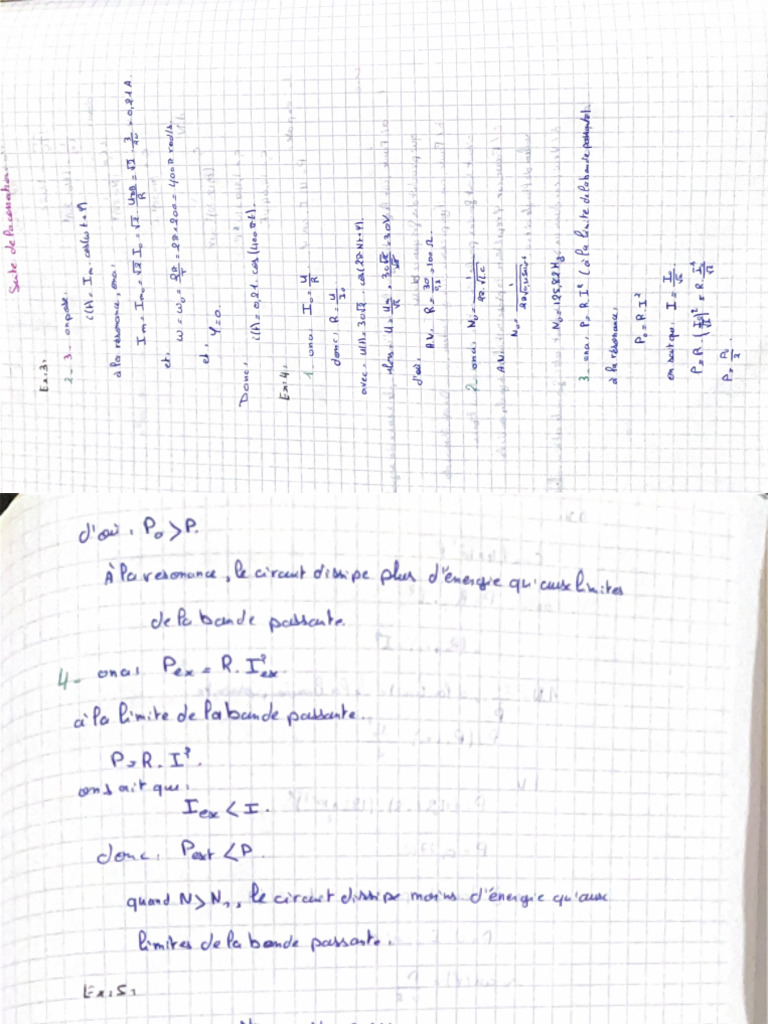 Suite de la correction
Ex:3:
2-3- on pose.
i(t) = Im. cos(ωt+φ)
à la résonance, ona:
Im = Im₀ = √2 I₀ = √2. = √2. 3/20 = 0,21 A.
et. ω = ω₀ = 2π/T = 2π×200 = 400π rad/s.
et, φ=0.
Donc: i(t) = 0,21. cos(400πt).
Ex:4:
1- ona: I₀ = U/R
donc: R = U/I₀
avec: u(t) = 30√2. cos(2πNt+φ).
U = Um/√2 = 30√2/√2 = 30V
d'où. A.V: R = 30/0,3 = 100 Ω.
2- ona: N₀ = 1/2π.√L.C
A.V:
N₀ =
N₀ = 125,82 Hz
3- ona: P = R.I² (à la limite de la bande passante).
à la résonance.
P₀ = R.I²
on sait que: I = I₀/√2
P = R.(I₀/√2)² = R.
P = P₀/2.
d'où, P₀ > P.
À la resonance, le circuit dissipe plus d'énergie qu'aux limites
de la bande passante.
4- ona: Pex = R. I²ex.
à la limite de la bande passante.
P = R. I².
on sait que:
Iex < I.
donc: Pext < P.
quand N > N₂, le circuit dissipe moins d'énergie qu'aux
limites de la bande passante.
Ex:5: